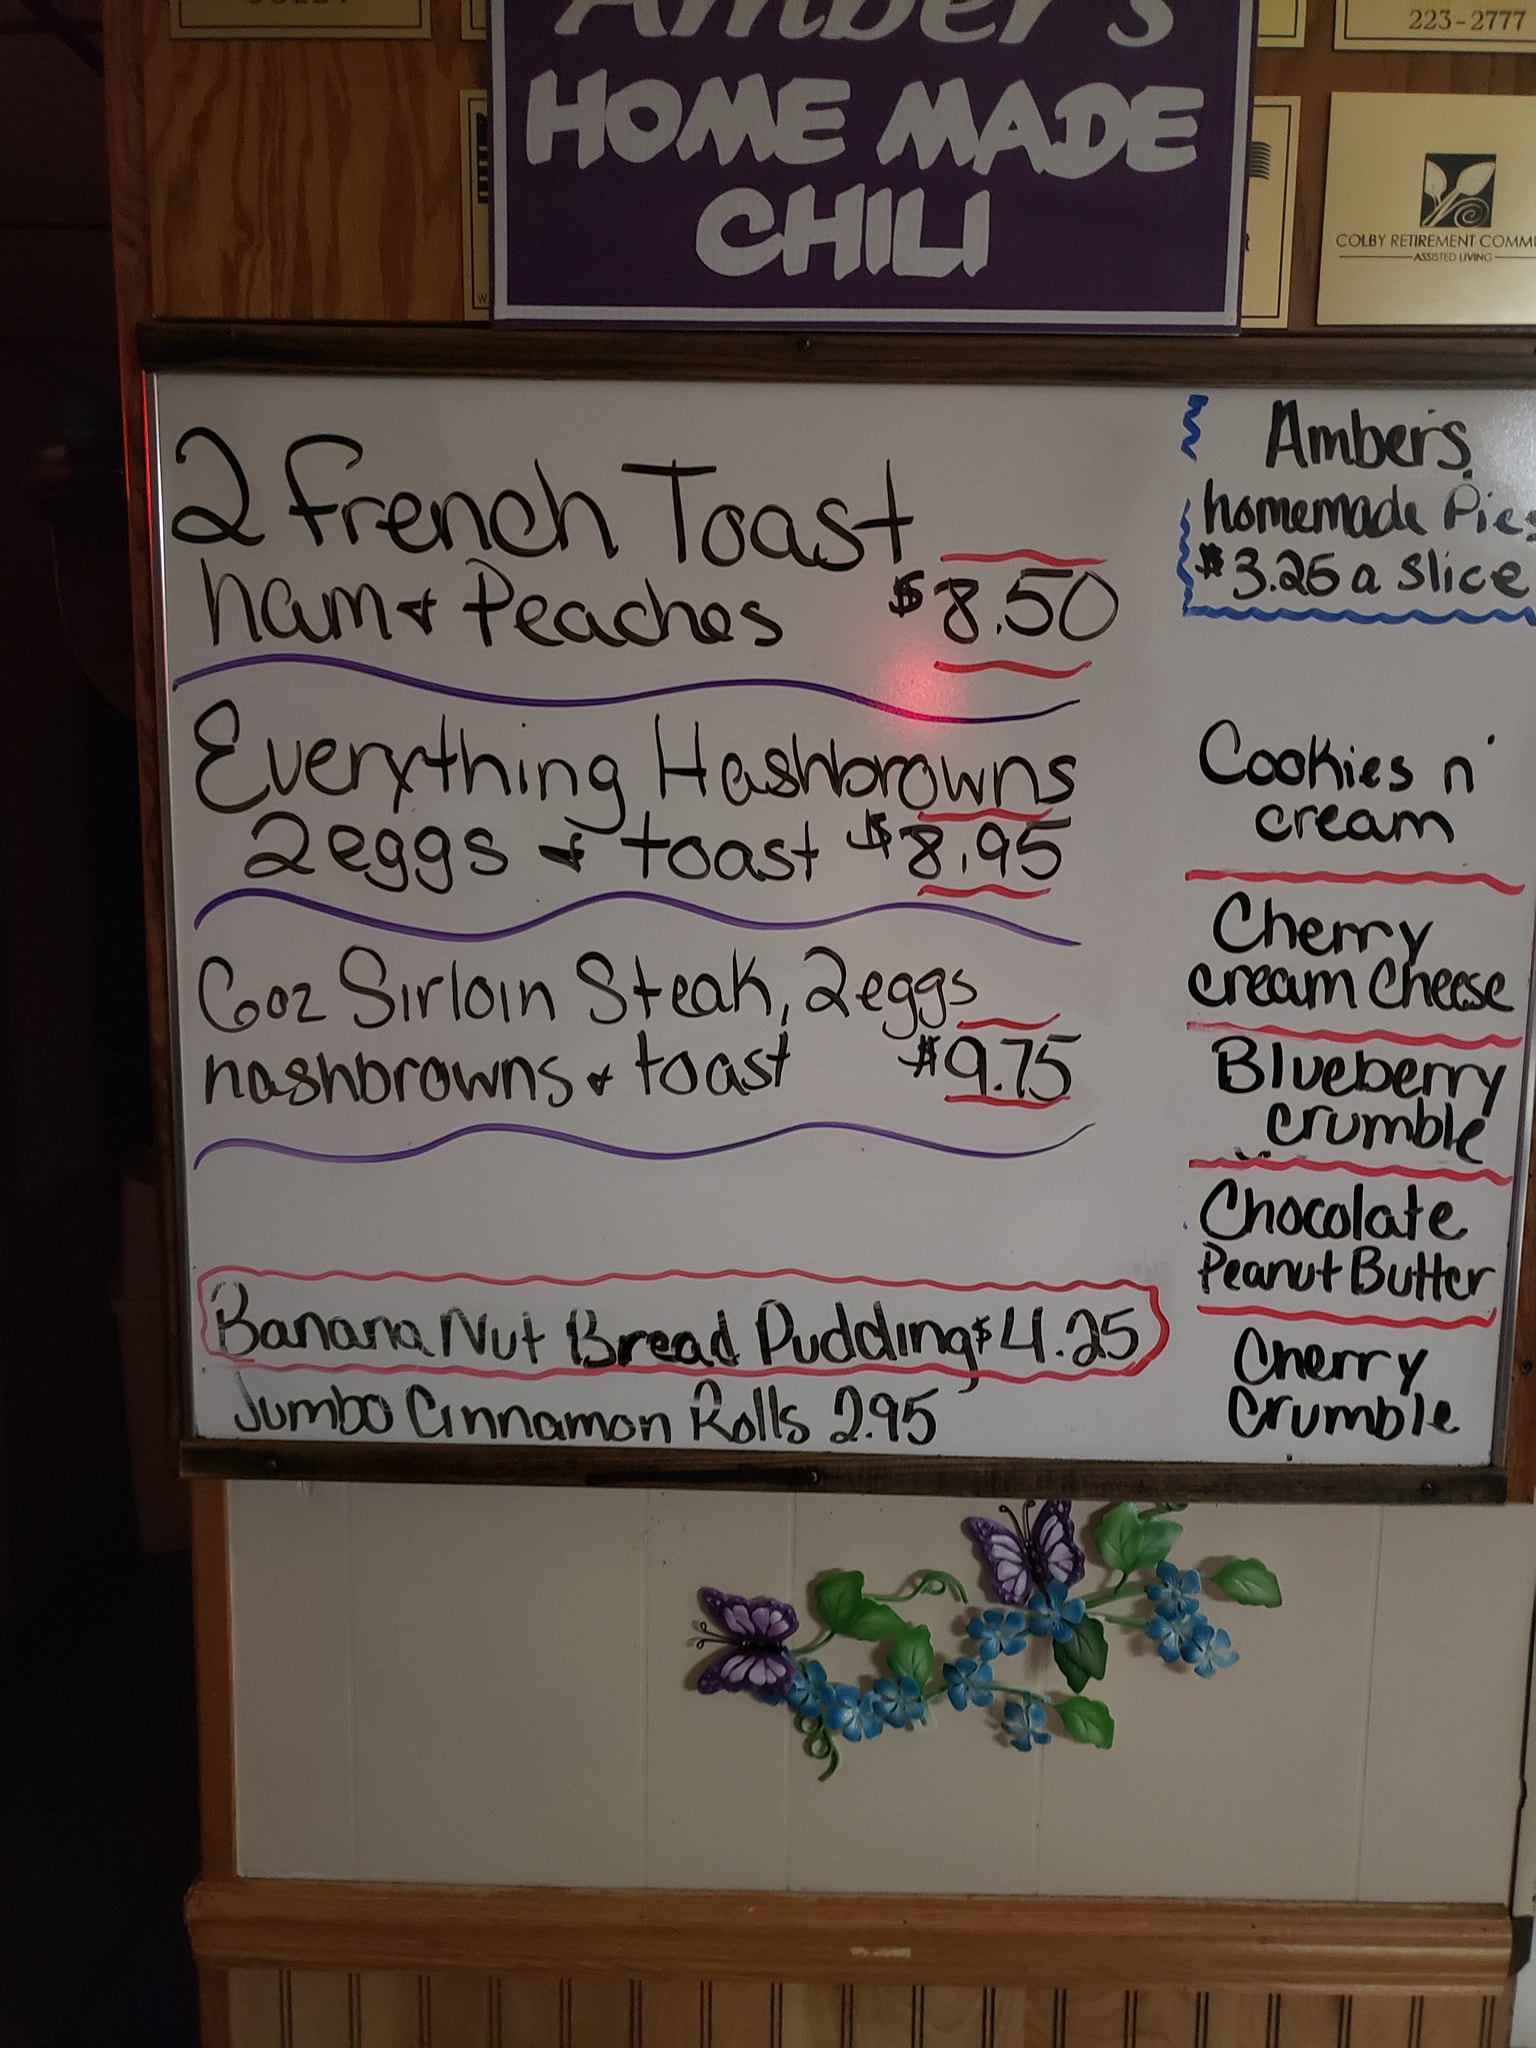 223-2777
Amber's
HOME MADE
CHILI
COLBY RETIREMENT COMMU
ASSISTED LIVING
2 French Toast
ham & Peaches $8.50
Everything Hashbrowns
2 eggs & toast $8.95
6oz Sirloin Steak, 2 eggs
hashbrowns & toast $9.75
Banana Nut Bread Pudding $4.25
Jumbo Cinnamon Rolls 2.95
Amber's
homemade Pies
$3.25 a slice
Cookies n'
cream
Cherry
cream Cheese
Blueberry
crumble
Chocolate
Peanut Butter
Cherry
Crumble